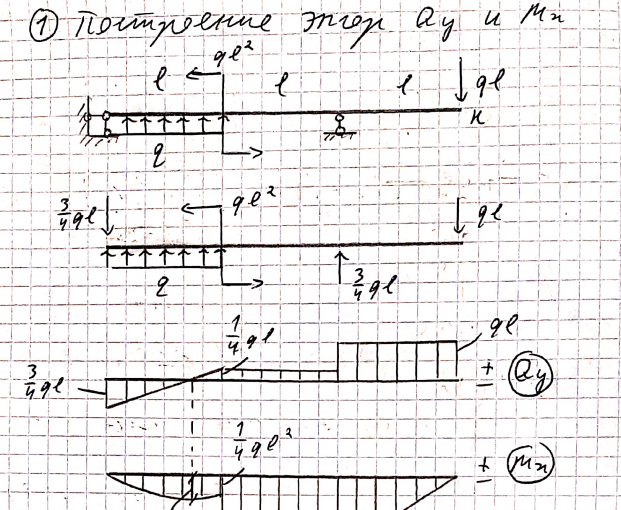 ① Построение эпюр Qy и Mx
ql²
l l l ql
K
q
3/4 ql ql² ql
q 3/4 ql
1/4 ql ql
3/4 ql + − Qy
1/4 ql² + − Mx